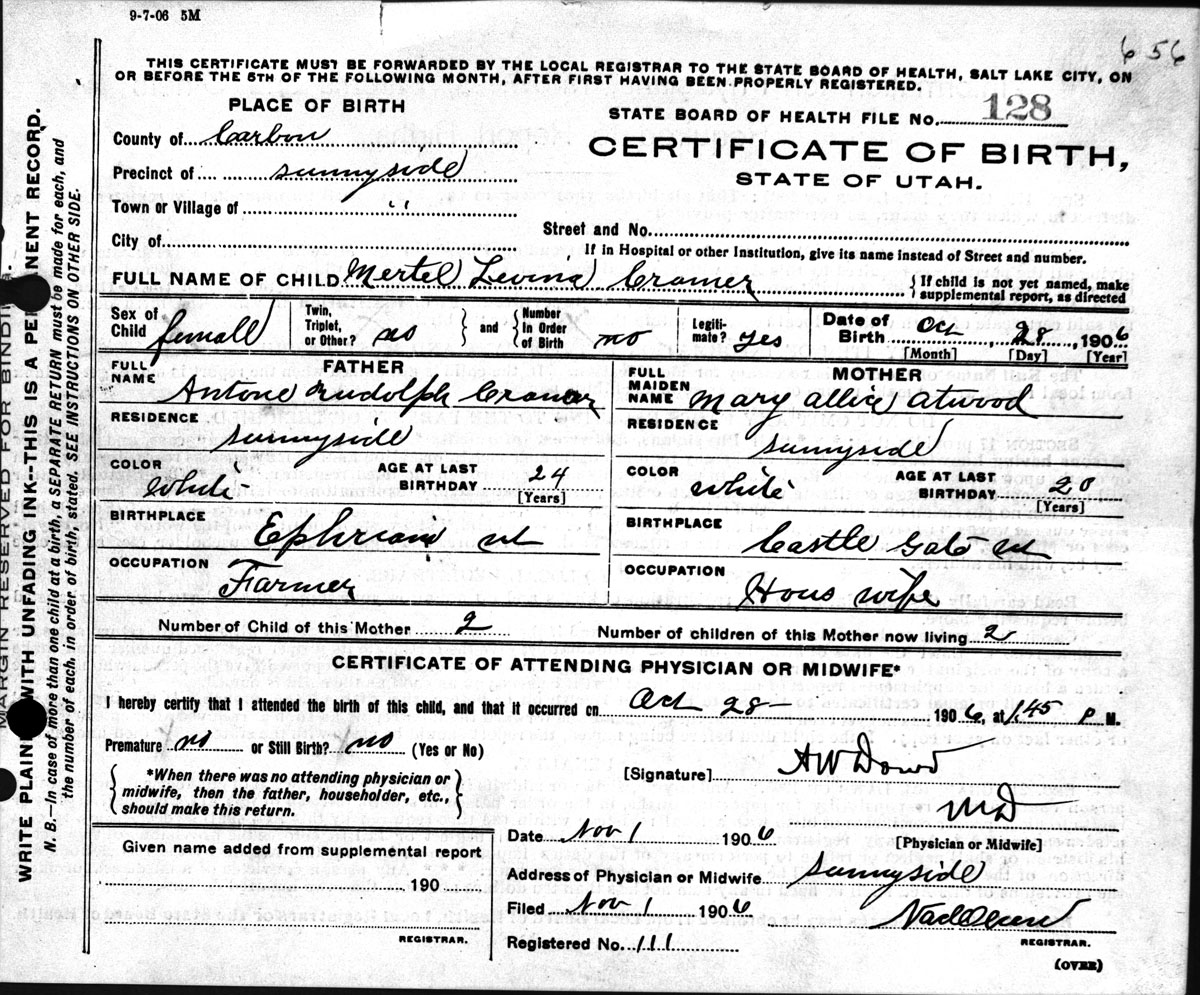 9-7-06 5M
656
THIS CERTIFICATE MUST BE FORWARDED BY THE LOCAL REGISTRAR TO THE STATE BOARD OF HEALTH, SALT LAKE CITY, ON
OR BEFORE THE 5TH OF THE FOLLOWING MONTH, AFTER FIRST HAVING BEEN PROPERLY REGISTERED.
PLACE OF BIRTH
County of Carbon
Precinct of Sunnyside
Town or Village of "
City of
STATE BOARD OF HEALTH FILE No. 128
CERTIFICATE OF BIRTH,
STATE OF UTAH.
Street and No.
If in Hospital or other Institution, give its name instead of Street and number.
FULL NAME OF CHILD Mertel Levina Cramer { If child is not yet named, make supplemental report, as directed
Sex of Child female Twin, Triplet, or Other? no } and { Number In Order of Birth no Legitimate? yes Date of Birth Oct 28, 1906
[Month] [Day] [Year]
FATHER
FULL NAME Antone Rudolph Cramer
RESIDENCE Sunnyside
COLOR White AGE AT LAST BIRTHDAY 24
[Years]
BIRTHPLACE Ephriam ut
OCCUPATION Farmer
MOTHER
FULL MAIDEN NAME Mary Allice Atwood
RESIDENCE Sunnyside
COLOR White AGE AT LAST BIRTHDAY 20
[Years]
BIRTHPLACE Castle Gate ut
OCCUPATION Hous wife
Number of Child of this Mother 2 Number of children of this Mother now living 2
CERTIFICATE OF ATTENDING PHYSICIAN OR MIDWIFE*
I hereby certify that I attended the birth of this child, and that it occurred on Oct 28 1906, at 1.45 P. M.
Premature no or Still Birth? no (Yes or No)
{ *When there was no attending physician or
midwife, then the father, householder, etc.,
should make this return. }
[Signature] A W Dowd
MD
[Physician or Midwife]
Given name added from supplemental report
190
REGISTRAR.
Date Nov 1 1906
Address of Physician or Midwife Sunnyside
Filed Nov 1 1906
Registered No. 111
REGISTRAR.
(OVER)
MARGIN RESERVED FOR BINDING.
WRITE PLAIN WITH UNFADING INK--THIS IS A PERMANENT RECORD.
N. B.—In case of more than one child at a birth, a SEPARATE RETURN must be made for each, and
the number of each, in order of birth, stated. SEE INSTRUCTIONS ON OTHER SIDE.